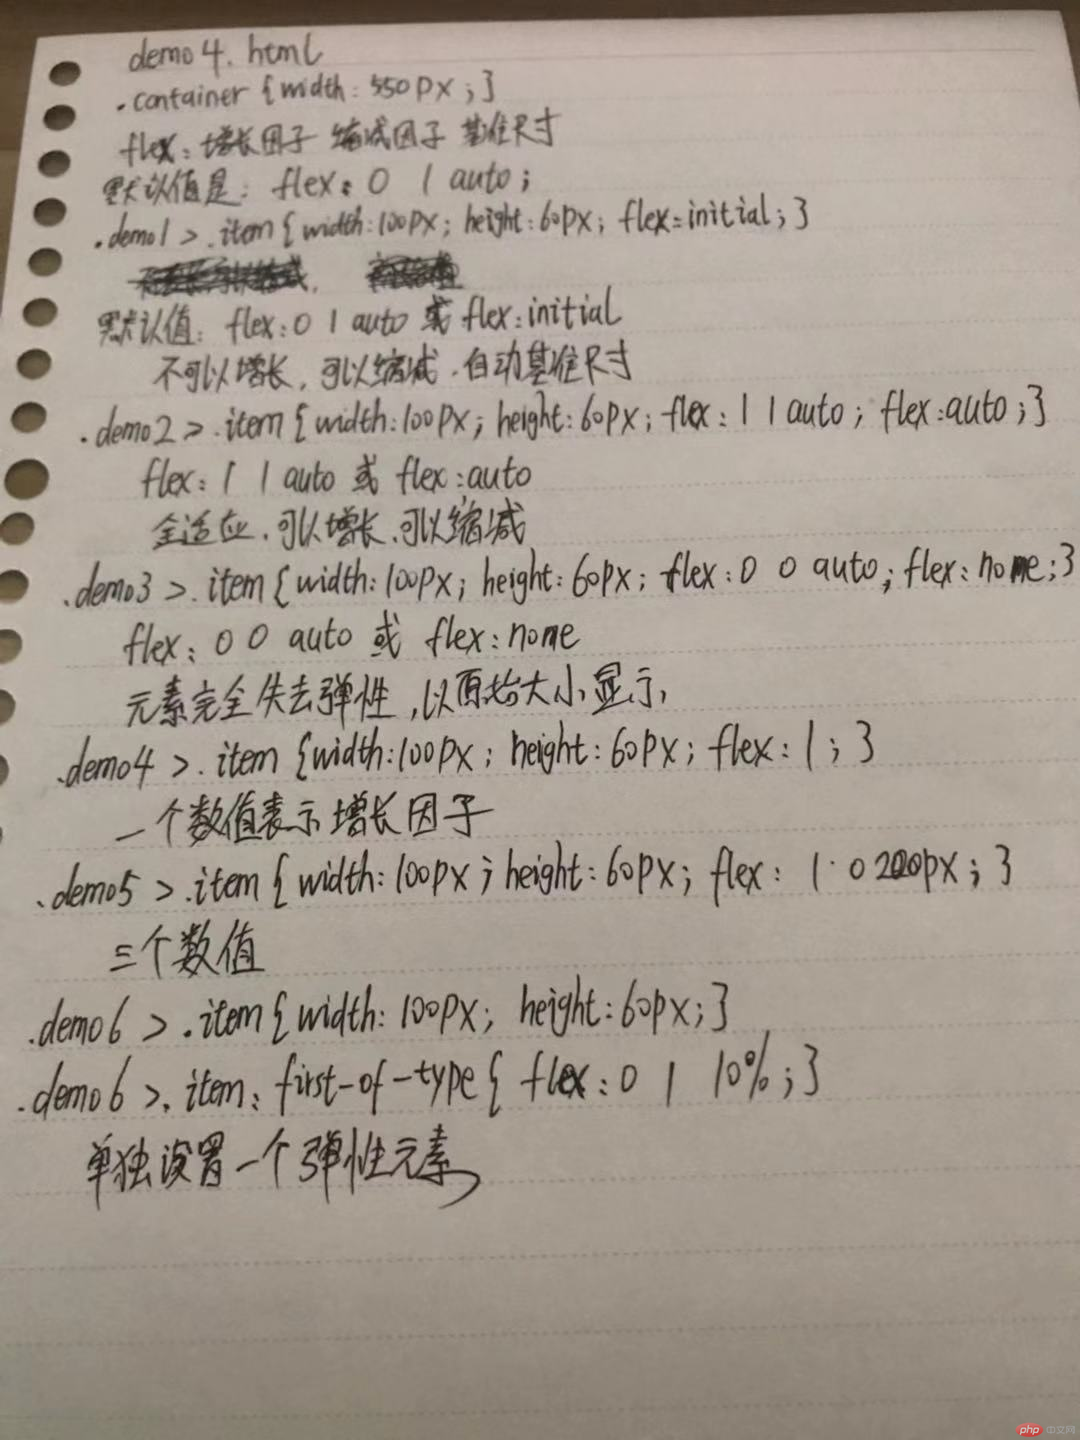 demo4. html
.container {width: 550px;}
flex: 增长因子 缩减因子 基准尺寸
默认值是: flex: 0 1 auto;
.demo1 >.item{width:100px; height:60px; flex=initial;}
默认值: flex:0 1 auto 或 flex:initial
不可以增长, 可以缩减.自动基准尺寸
.demo2 >.item{width:100px; height:60px; flex:1 1 auto; flex:auto;}
flex: 1 1 auto 或 flex:auto
全适应.可以增长.可以缩减
.demo3 >.item{width:100px; height:60px; flex:0 0 auto; flex:nome;}
flex: 0 0 auto 或 flex:nome
元素完全失去弹性,以原始大小显示,
.demo4 >.item {width:100px; height:60px; flex:1;}
一个数值表示增长因子
.demo5 >.item{width:100px; height:60px; flex: 1 0 200px;}
三个数值
.demo6 >.item{width:100px; height:60px;}
.demo6 >.item:first-of-type{ flex:0 1 10%;}
单独设置一个弹性元素
php 中文网